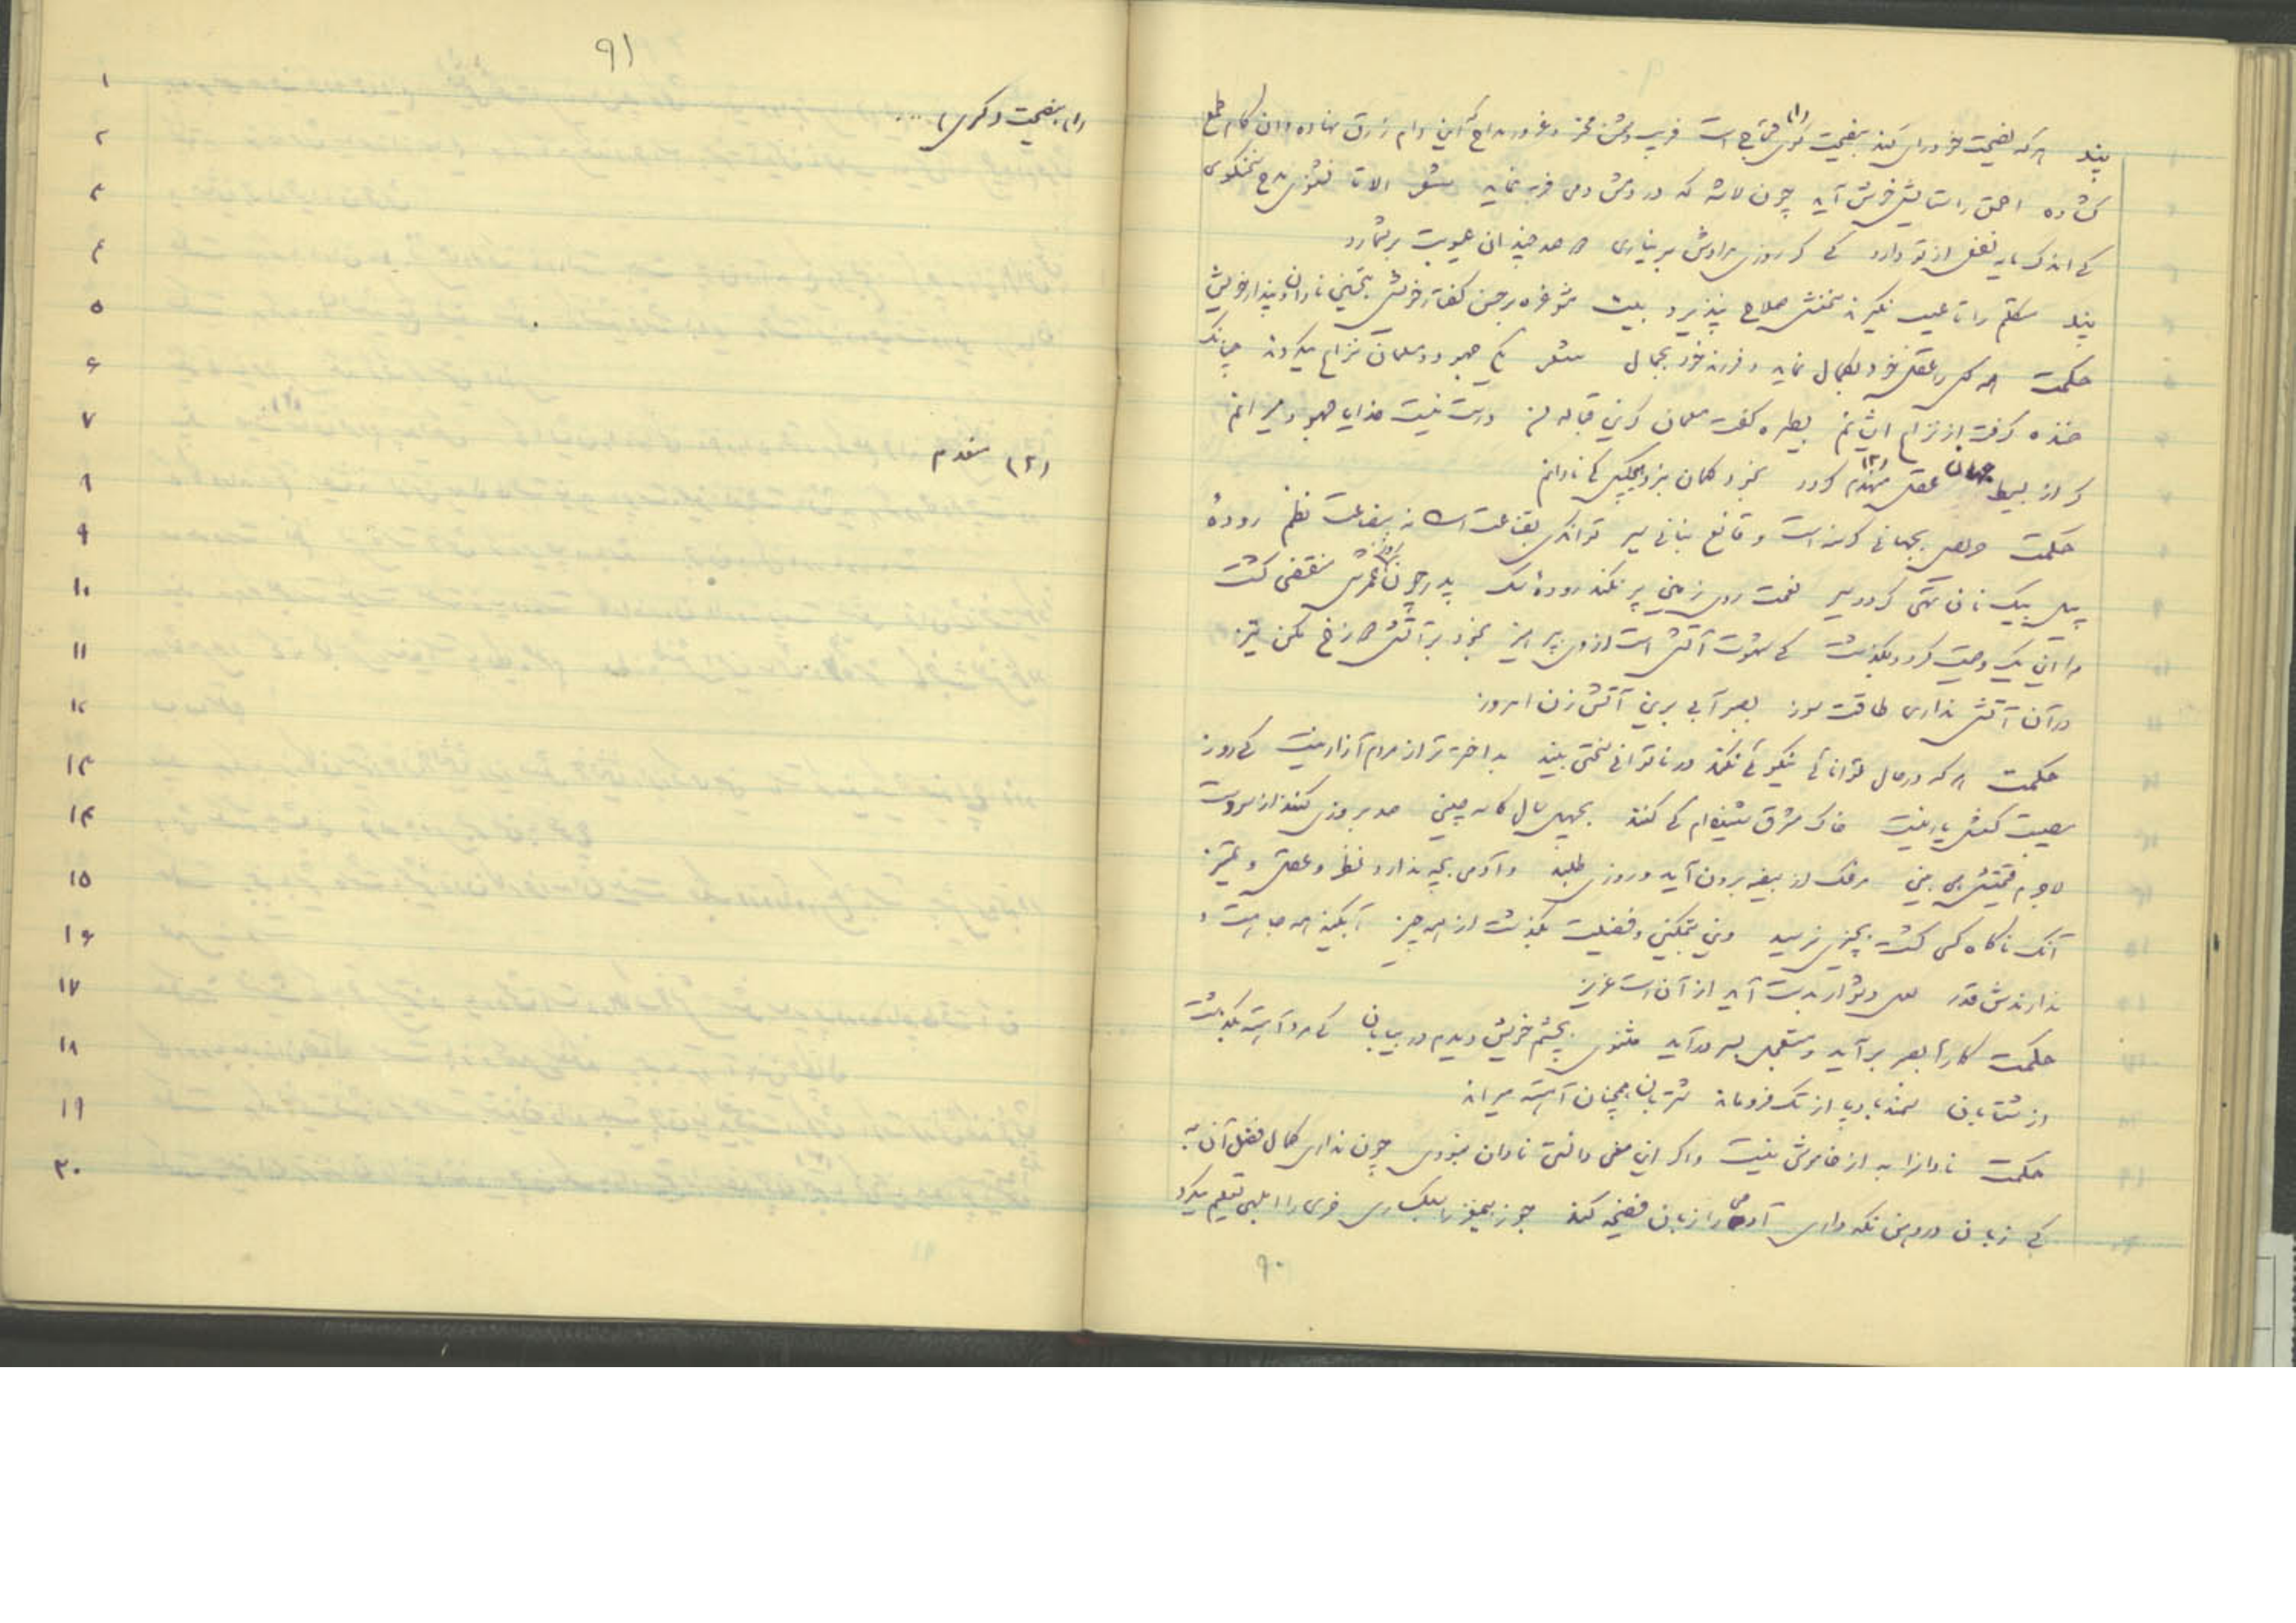 پند هر که نصیحت خودرای کند بنصیحت گری (۱) محتاج است فریب دشمن مخر و غرور مداح که این دام زرق نهاده و آن کام طمع
گشاده احمق را ستایش خوش آید چون لاشه که در دمش دمی فربه نماید شعر الا تا نشنوی مدح سخنگوی
که اندک مایه نفعی از تو دارد که گر روزی مرادش بر نیاری دو صد چندان عیوبت بر شمارد
پند متکلم را تا عیب نگیرند سخنش صلاح نپذیرد بیت مشو غره بر حسن گفتار خویش بتحسین نادان و پندار خویش
حکمت همه کس را عقل خود بکمال نماید و فرزند خود بجمال شعر یکی جهود و مسلمان نزاع میکردند چنانک
خنده گرفت از نزاع ایشانم بطیره گفت مسلمان گر این قباله من درست نیست خدایا جهود میرانم
گر از بسیط جهان عقل منهدم (۲) گردد بخود گمان نبرد هیچکس که نادانم
حکمت حریص بجهانی گرسنه است و قانع بنانی سیر توانگری بقناعت است نه ببضاعت نظم رودهٔ
پهی بیک نان تهی گردد سیر نعمت روی زمین پر نکند رودهٔ تنگ پدر چون دور عمرش منقضی گشت
مرا این یک وصیت کرد و بگذشت که شهوت آتش است از وی بپرهیز بخود بر آتش دوزخ مکن تیز
در آن آتش نداری طاقت سوز بصبر آبی برین آتش زن امروز
حکمت هر که در حال توانائی نیکوئی نکند در ناتوانی سختی بیند بد اختر تر از مردم آزار نیست که روز
مصیبت کسش یار نیست خاک مشرق شنیده‌ام که کنند بچهل سال کاسه چینی صد بروزی کنند از مرودشت
لاجرم قیمتش همی بینی مرغک از بیضه برون آید و روزی طلبد و آدمی بچه ندارد نظر و عقل و تمیز
آنک ناگاه کسی گشت بچیزی نرسید وین بتمکین و فضیلت بگذشت از همه چیز آبگینه همه جا هست و
ندارندش قدر لعل دشوار بدست آید از آن است عزیز
حکمت کارها بصبر برآید و مستعجل بسر درآید مثنوی بچشم خویش دیدم در بیابان که مرد آهسته بگذشت
از شتابان سمند بادپا از تک فروماند شتربان همچنان آهسته میراند
حکمت نادانرا به از خاموشی نیست و اگر این معنی دانستی نادان نبودی چون نداری کمال فضل آن به
که زبان در دهن نگه داری آدمی را زبان فضیحه کند جوز بیمغز را سبکساری خری را ابلهی تعلیم میکرد
۹۰
۹۱
(۱) بنصیحت دگری ....
(۲) منعدم
۱
۲
۳
۴
۵
۶
۷
۸
۹
۱۰
۱۱
۱۲
۱۳
۱۴
۱۵
۱۶
۱۷
۱۸
۱۹
۲۰